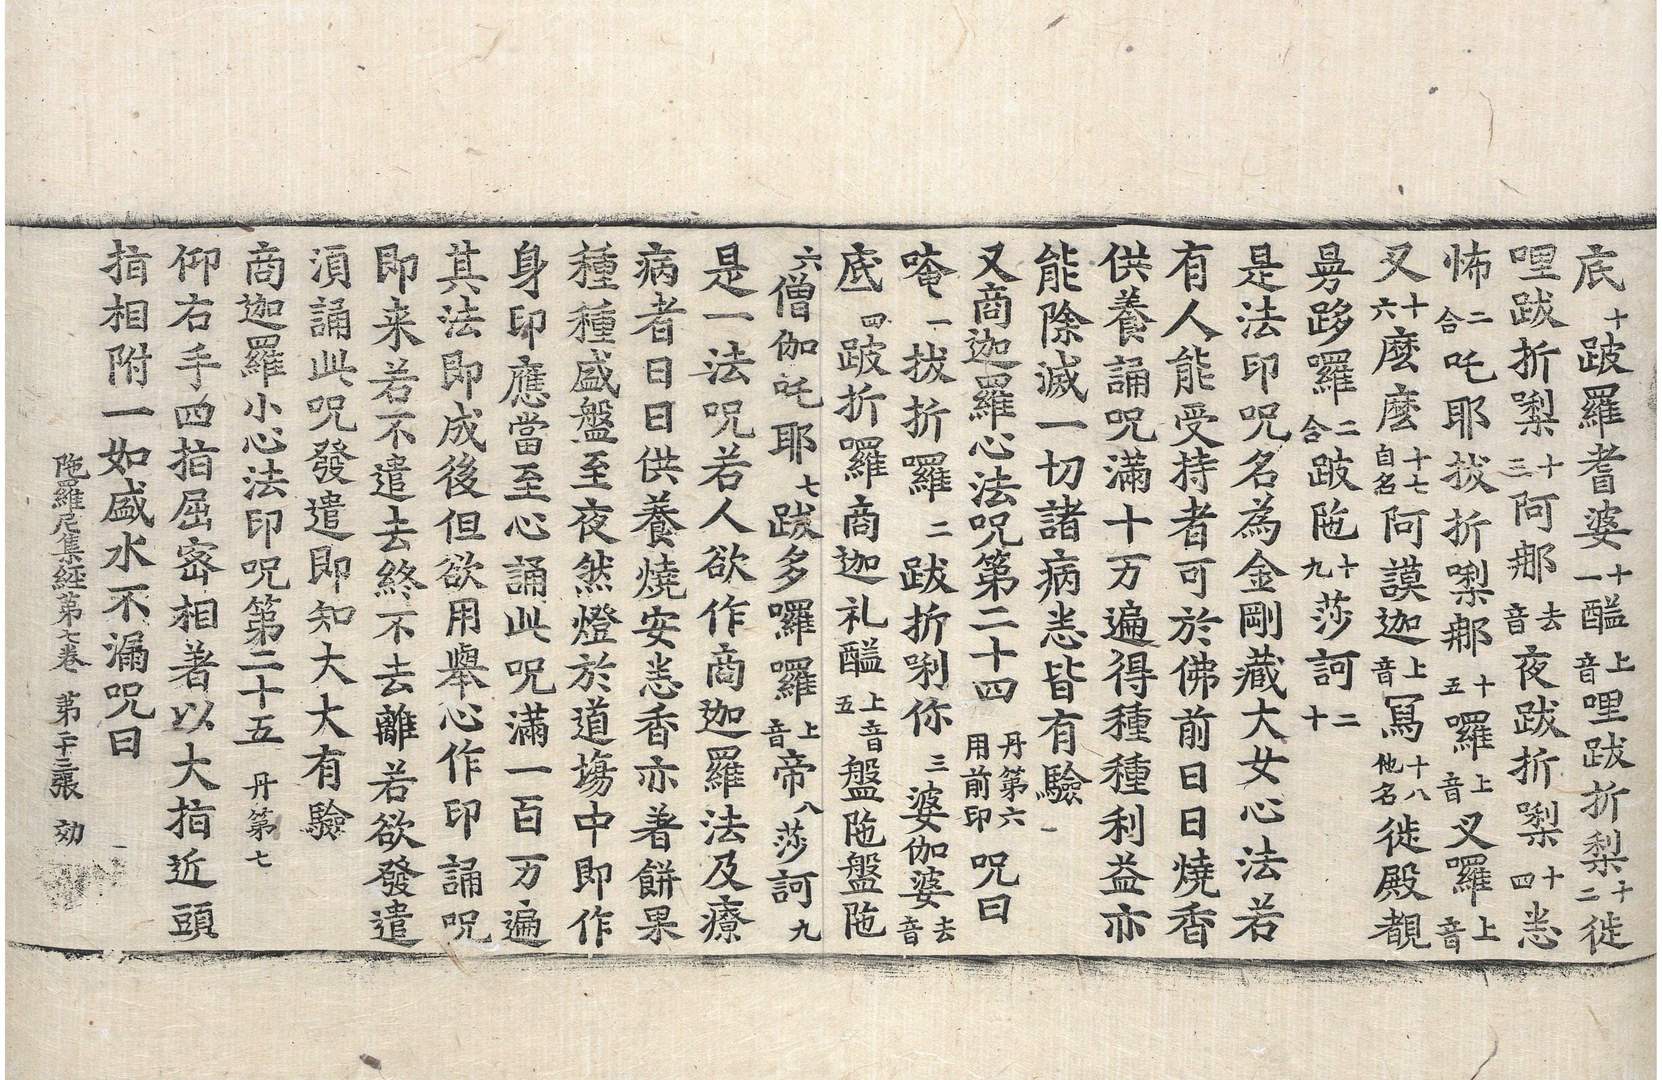 底十跛羅耆婆十一醯上音哩跋折梨十二徙
哩跋折㘑十三阿那去音夜跋折㘑十四悉
怖二合吒耶拔折㘑那十五囉上音叉囉上音
叉十六麼麼十七自名阿謨迦上音寫十八他名徙殿覩
㬅跢囉二合跛陁十九莎訶二十
是法印呪名為金剛藏大女心法若
有人能受持者可於佛前日日燒香
供養誦呪滿十万遍得種種利益亦
能除滅一切諸病悉皆有驗
又商迦羅心法呪第二十四丹第六用前印呪曰
唵一拔折囉二跋折唎你三婆伽婆去音
底四跛折囉商迦礼醯上音五盤陁盤陁
六僧伽吒耶七跋多囉囉上音帝八莎訶九
是一法呪若人欲作商迦羅法及療
病者日日供養燒安悉香亦著餅果
種種盛盤至夜然燈於道塲中即作
身印應當至心誦此呪滿一百万遍
其法即成後但欲用舉心作印誦呪
即来若不遣去終不去離若欲發遣
湏誦此呪發遣即知大大有驗
商迦羅小心法印呪第二十五丹第七
仰右手四指屈宻相著以大指近頭
指相附一如盛水不漏呪曰
陁羅尼集経第七卷 第二十三張 効